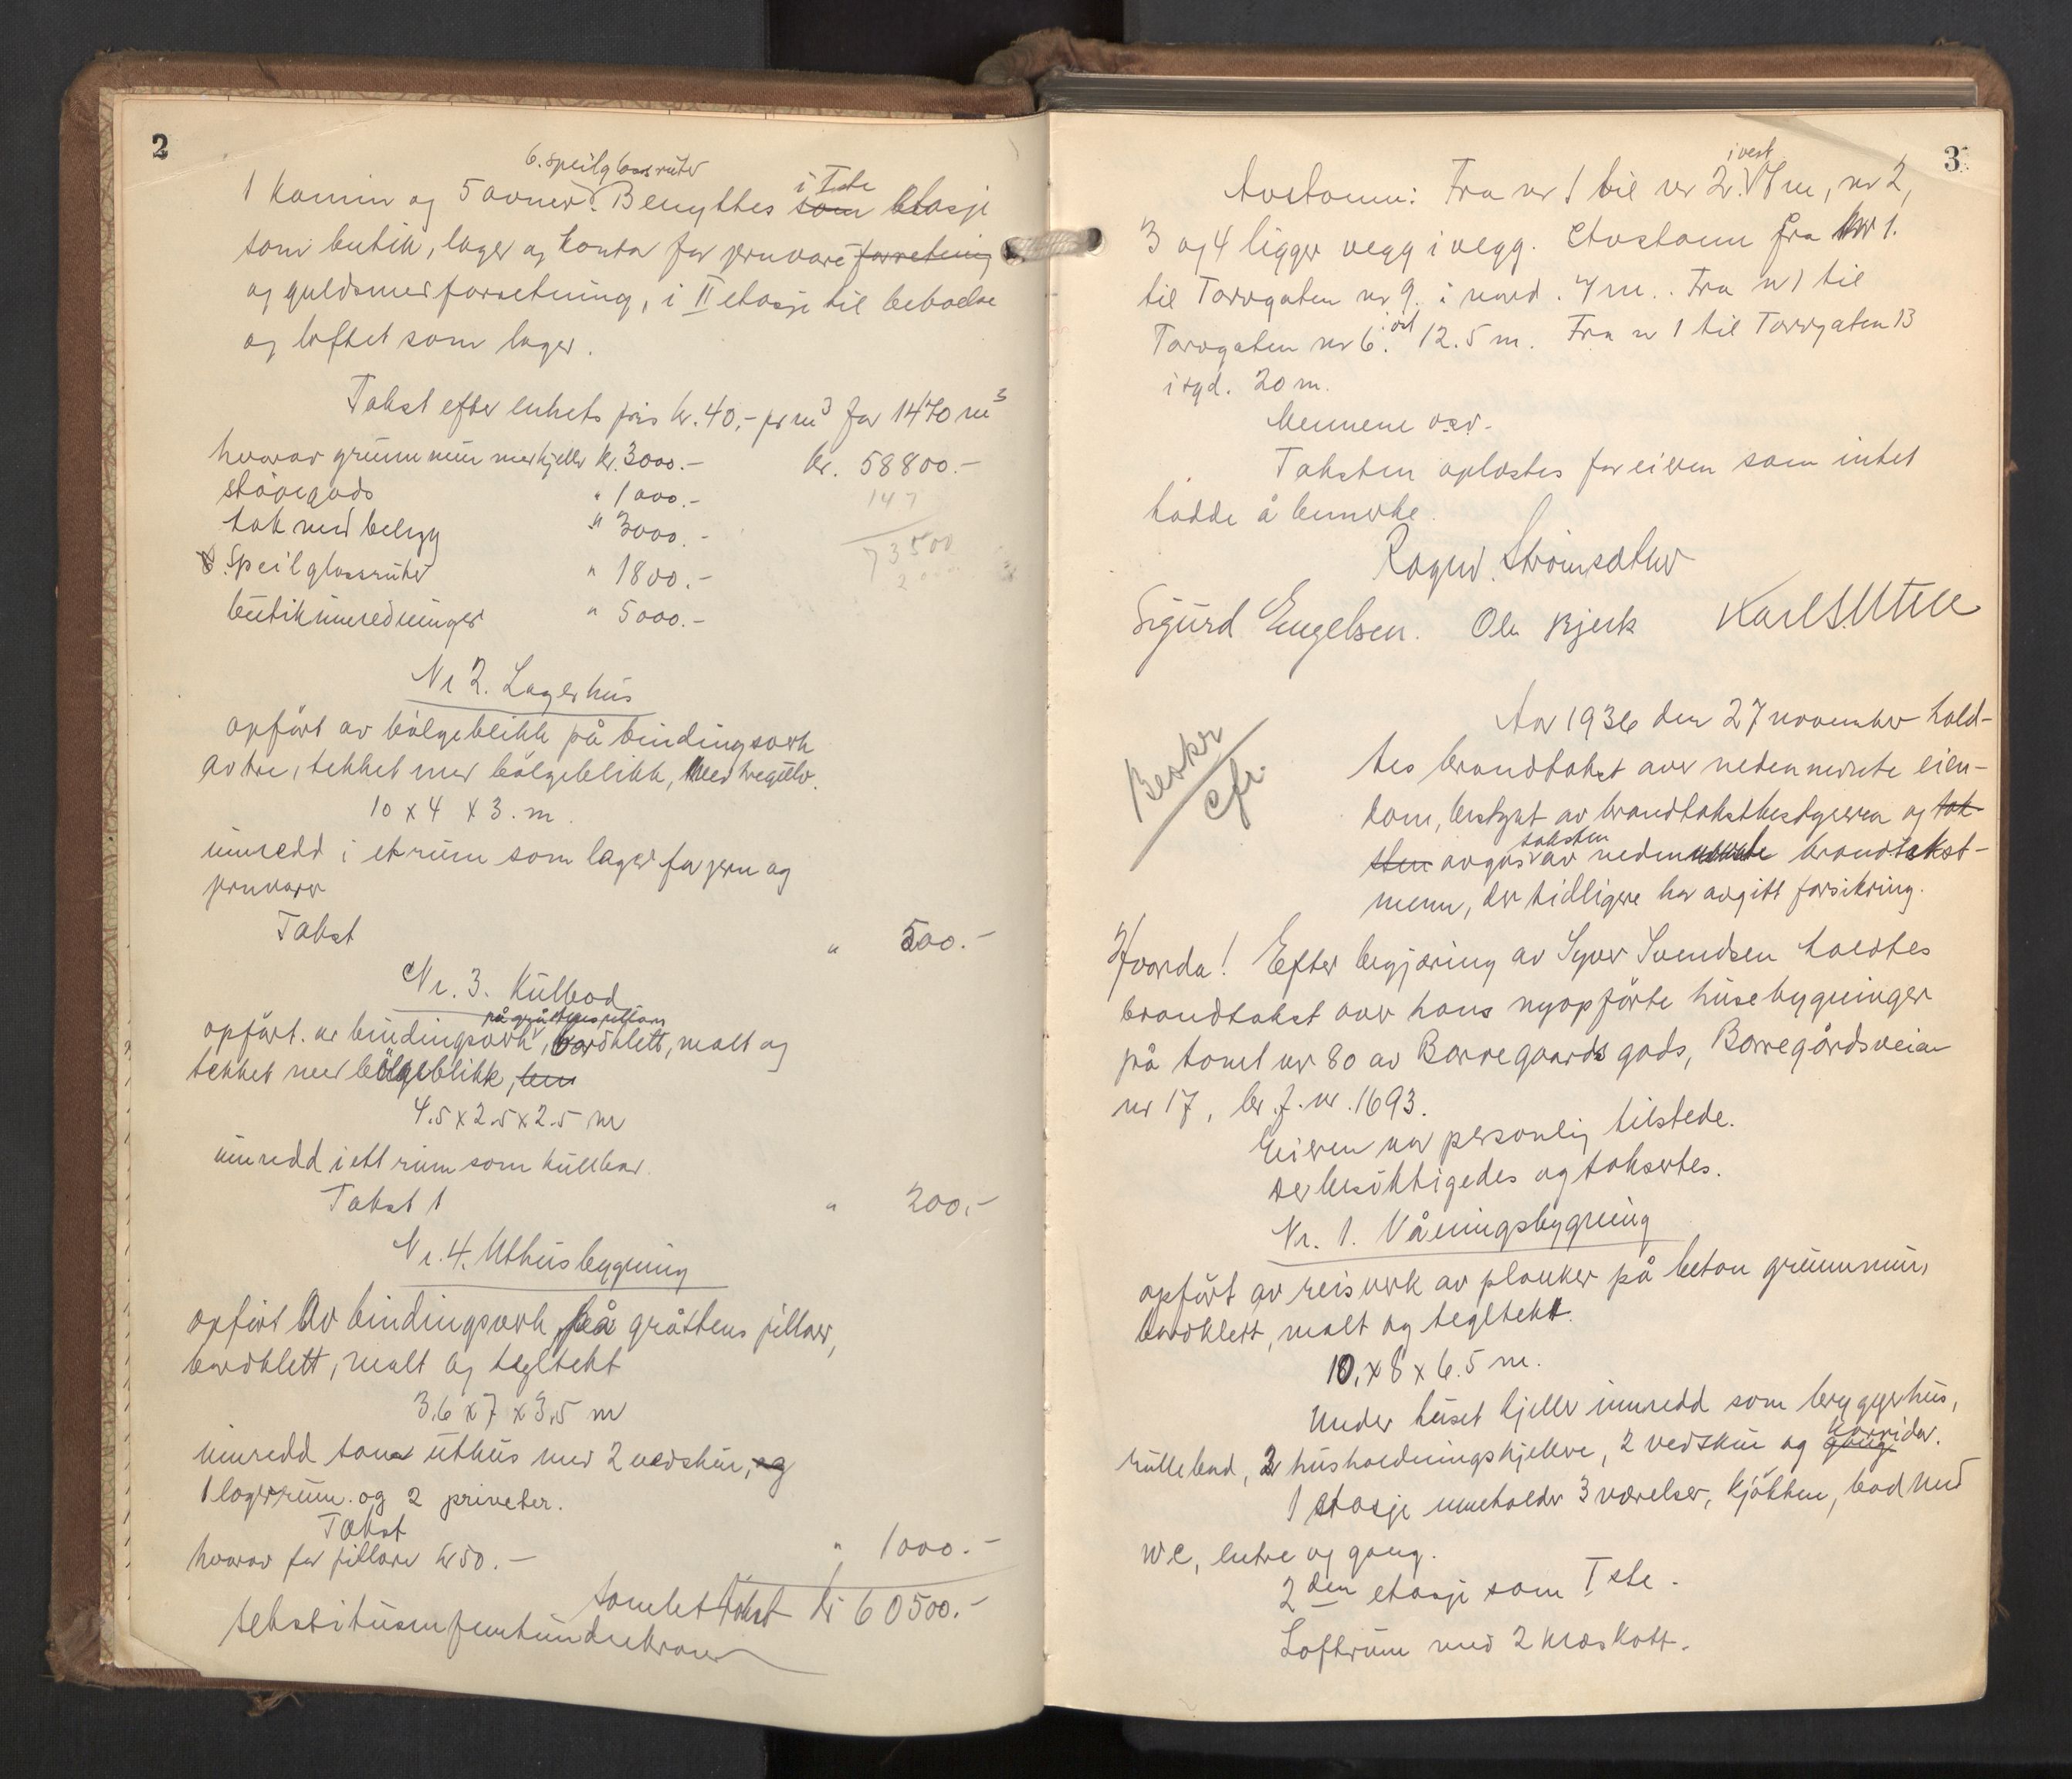 2
6. speilglassruter
1 kamin og 5 ovner. Benyttes i Iste som etasje
som butik, lager og kontor for jernvare forretning
og guldsmedforretning, i II etasje til beboelse
og loftet som lager.
Takst efter enhets pris kr. 40,- pr m³ for 1470 m³
hvorav grunnmur med kjeller kr. 3000.- kr. 58800.-
støpegods " 1000.- 147
tak med belegg " 3000.- 73500
Speilglassruter " 1800.-
butikinnredninger " 5000.-
Nr 2. Lagerhus
opført av bølgeblikk på bindingsverk
av tre, tekket med bølgeblikk, med tregulv.
10 x 4 x 3. m.
innredd i et rum som lager for jern og
jernvarer
Takst " 500.-
Nr. 3. Kullbod
på gråstenspillarer
opført. av bindingsverk, bordklett, malt og
tekket med bølgeblikk,
4.5 x 2.5 x 2.5 m
innredd i ett rum som kullbod.
Takst 1 " 200.-
Nr. 4. Uthusbygning
opført av bindingsverk på gråstens pillarer,
bordklett, malt og tegltekt
3,6 x 7 x 3,5 m
innredd som uthus med 2 vedskur, og
1 lagerrum. og 2 priveter.
Takst
hvorav for pillarer kr 50.- " 1000.-
samlet takst kr 60500.-
sekstitusenfemhundrekroner
3
i vest
Avstann: Fra nr 1 til nr 2. 17 m, nr 2,
3 og 4 ligger vegg i vegg. Avstann fra nr 1.
til Torvgaten nr 9. i nord. 7 m.. Fra nr 1 til
Torvgaten nr 6. i øst 12.5 m. Fra nr 1 til Torvgaten 13
i syd. 20 m.
Mennene osv.
Taksten oplæstes for eieren som intet
hadde å bemerke.
Ragnv. Strømsæther
Sigurd Engelsen. Ole Bjerk Karl S. Utne
Aar 1936 den 27 november hold-
Beskr
cfr.
tes brandtakst over nedennevnte eien-
dom, bestyrt av brandtakstbestyreren og tak-
sten avgis taksten av nedennevnte brandtakst-
menn, der tidligere har avgitt forsikring.
Hvorda! Efter begjæring av Syver Svendsen holdtes
brandtakst over hans nyopførte husebygninger
på tomt nr 80 av Borregaards gods, Borregårdsveien
nr 17, br. f. nr. 1693.
Eieren var personlig tilstede.
Der besiktigedes og taksertes.
Nr. 1. Våningsbygning
opført av reisverk av planker på beton grunnmur,
bordklett, malt og tegltekt.
10. x 8 x 6.5 m.
Under huset kjeller innredd som bryggerhus,
rullebod, 2 husholdningskjellere, 2 vedskur og gang korridor.
1 etasje inneholder 3 værelser, kjøkken, bad med
WC, entre og gang.
2den etasje som Iste.
Loftrum med 2 kvæskott.